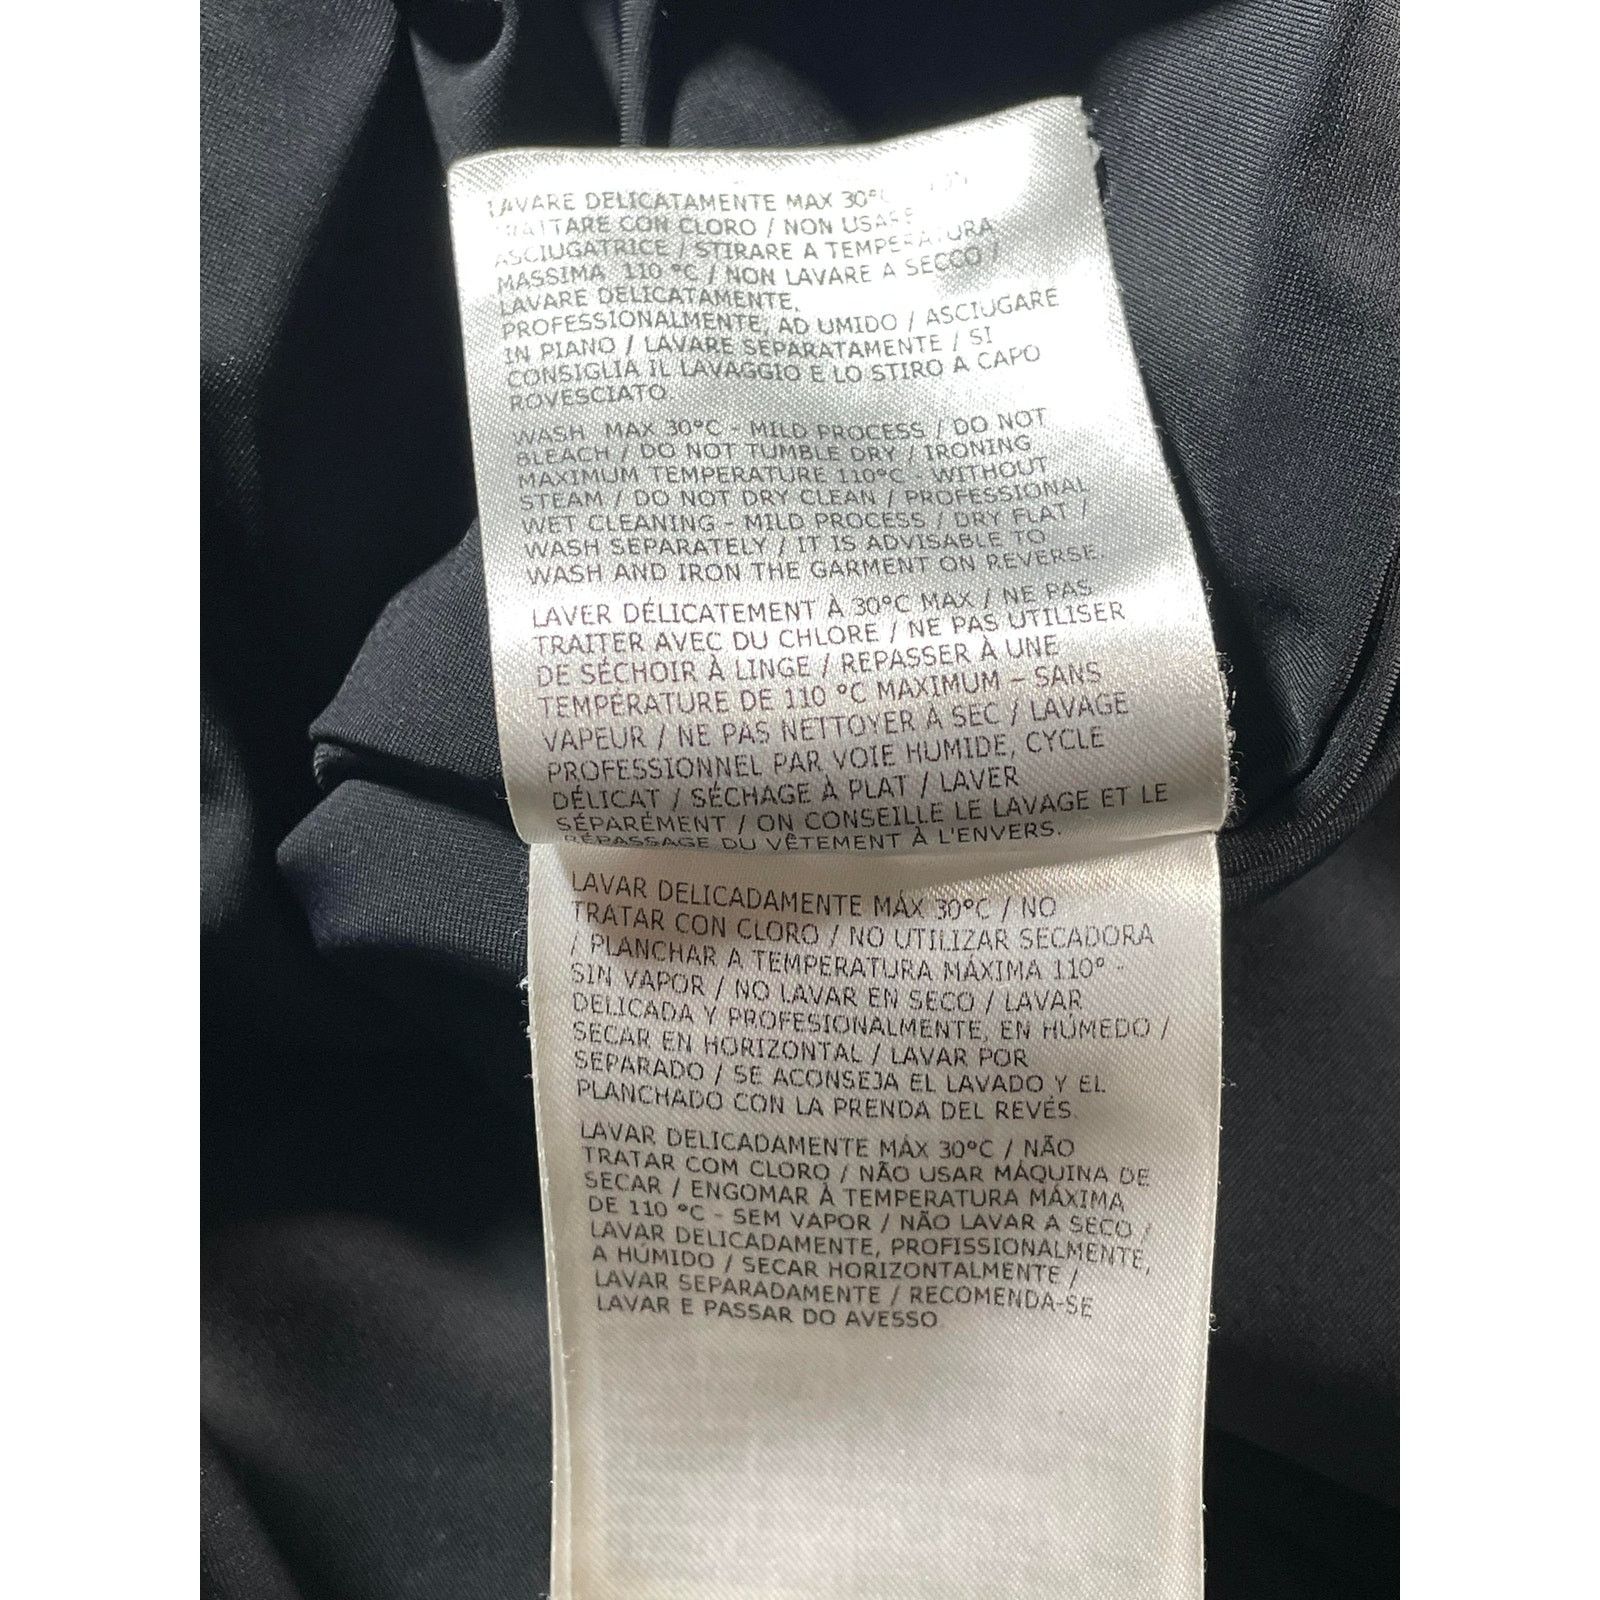 LAVARE DELICATAMENTE MAX 30°C
TRATTARE CON CLORO / NON USARE
ASCIUGATRICE / STIRARE A TEMPERATURA
MASSIMA 110 °C / NON LAVARE A SECCO /
LAVARE DELICATAMENTE,
PROFESSIONALMENTE, AD UMIDO / ASCIUGARE
IN PIANO / LAVARE SEPARATAMENTE / SI
CONSIGLIA IL LAVAGGIO E LO STIRO A CAPO
ROVESCIATO.
WASH MAX 30°C - MILD PROCESS / DO NOT
BLEACH / DO NOT TUMBLE DRY / IRONING
MAXIMUM TEMPERATURE 110°C - WITHOUT
STEAM / DO NOT DRY CLEAN / PROFESSIONAL
WET CLEANING - MILD PROCESS / DRY FLAT /
WASH SEPARATELY / IT IS ADVISABLE TO
WASH AND IRON THE GARMENT ON REVERSE.
LAVER DÉLICATEMENT À 30°C MAX / NE PAS
TRAITER AVEC DU CHLORE / NE PAS UTILISER
DE SÉCHOIR À LINGE / REPASSER À UNE
TEMPÉRATURE DE 110 °C MAXIMUM – SANS
VAPEUR / NE PAS NETTOYER A SEC / LAVAGE
PROFESSIONNEL PAR VOIE HUMIDE, CYCLE
DÉLICAT / SÉCHAGE À PLAT / LAVER
SÉPARÉMENT / ON CONSEILLE LE LAVAGE ET LE
REPASSAGE DU VÊTEMENT À L'ENVERS.
LAVAR DELICADAMENTE MÁX 30°C / NO
TRATAR CON CLORO / NO UTILIZAR SECADORA
/ PLANCHAR A TEMPERATURA MÁXIMA 110° -
SIN VAPOR / NO LAVAR EN SECO / LAVAR
DELICADA Y PROFESIONALMENTE, EN HÚMEDO /
SECAR EN HORIZONTAL / LAVAR POR
SEPARADO / SE ACONSEJA EL LAVADO Y EL
PLANCHADO CON LA PRENDA DEL REVÉS.
LAVAR DELICADAMENTE MÁX 30°C / NÃO
TRATAR COM CLORO / NÃO USAR MÁQUINA DE
SECAR / ENGOMAR À TEMPERATURA MÁXIMA
DE 110 °C - SEM VAPOR / NÃO LAVAR A SECO /
LAVAR DELICADAMENTE, PROFISSIONALMENTE,
A HÚMIDO / SECAR HORIZONTALMENTE /
LAVAR SEPARADAMENTE / RECOMENDA-SE
LAVAR E PASSAR DO AVESSO.